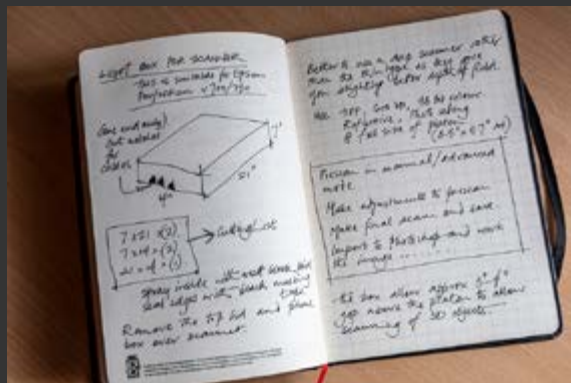 LIGHT BOX FOR SCANNER
This is suitable for Epson
Perfection V700/750
(one end only)
Cut notches
for
cables
7"
21"
4"
7 x 21 = (2)
7 x 14 = (2)
21 x 14 = (1)
Cutting list
Spray inside with matt black, and
seal edges with black masking
tape
Remove the top lid and place
box over scanner
Better to use a deep scanner rather
than the thin type as they give
you slightly better depth of field.
Use TIFF,
48 bit colour
Reflective, Photo
full size of platen
Prescan in normal/advanced
mode
Make adjustments to prescan
Make final scan and save.
Import to Photoshop and work
the image
The box allows approx
gap above the platen to allow
scanning of 3D objects